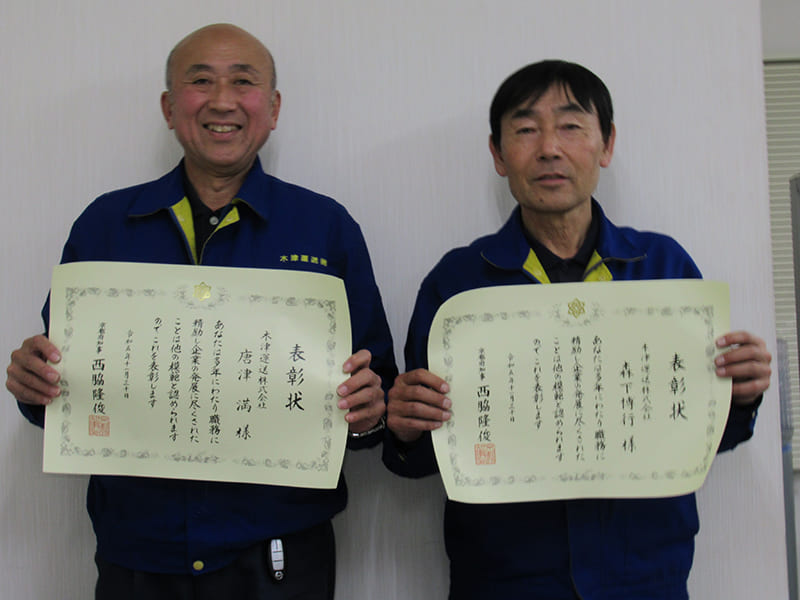 木津運送㈱
表彰状
木津運送株式会社
唐津 満 様
あなたは多年にわたり職務に
精励し企業の発展に尽くされた
ことは他の模範と認められます
のでこれを表彰します
令和五年十一月三十日
京都府知事 西脇隆俊
表彰状
木津運送株式会社
森下博行 様
あなたは多年にわたり職務に
精励し企業の発展に尽くされた
ことは他の模範と認められます
のでこれを表彰します
令和五年十一月三十日
京都府知事 西脇隆俊